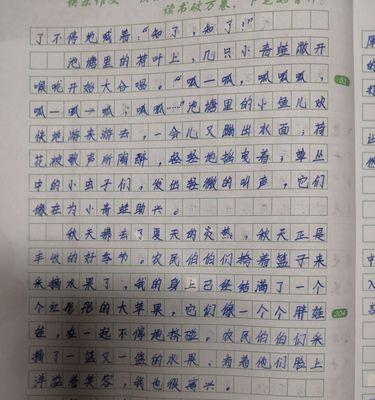 读书破万卷，下笔
了不得地喊着："知了，知了！"
池塘里的荷叶上，几只小青蛙敞开
喉咙开始大合唱。"呱一呱，呱呱呱，
呱一呱一呱，呱呱……"池塘里的小鱼儿欢
快地游来游去，一会儿又蹦出水面；荷
花被歌声所陶醉，轻轻地摇曳着；草丛
中的小虫子们，发出轻微的叫声，它们
像在为小青蛙助兴。
秋天带去了夏天的炎热，秋天正是
丰收的好季节。农民伯伯们挎着篮子来
采摘水果了，我的身上已经结满了一个
个红彤彤的大苹果，它们像一个个胖娃
娃，在一起不停地挤碰。农民伯伯们采
摘了一篮又一篮的水果，看着他们脸上
洋溢着笑容，我也很高兴。
204